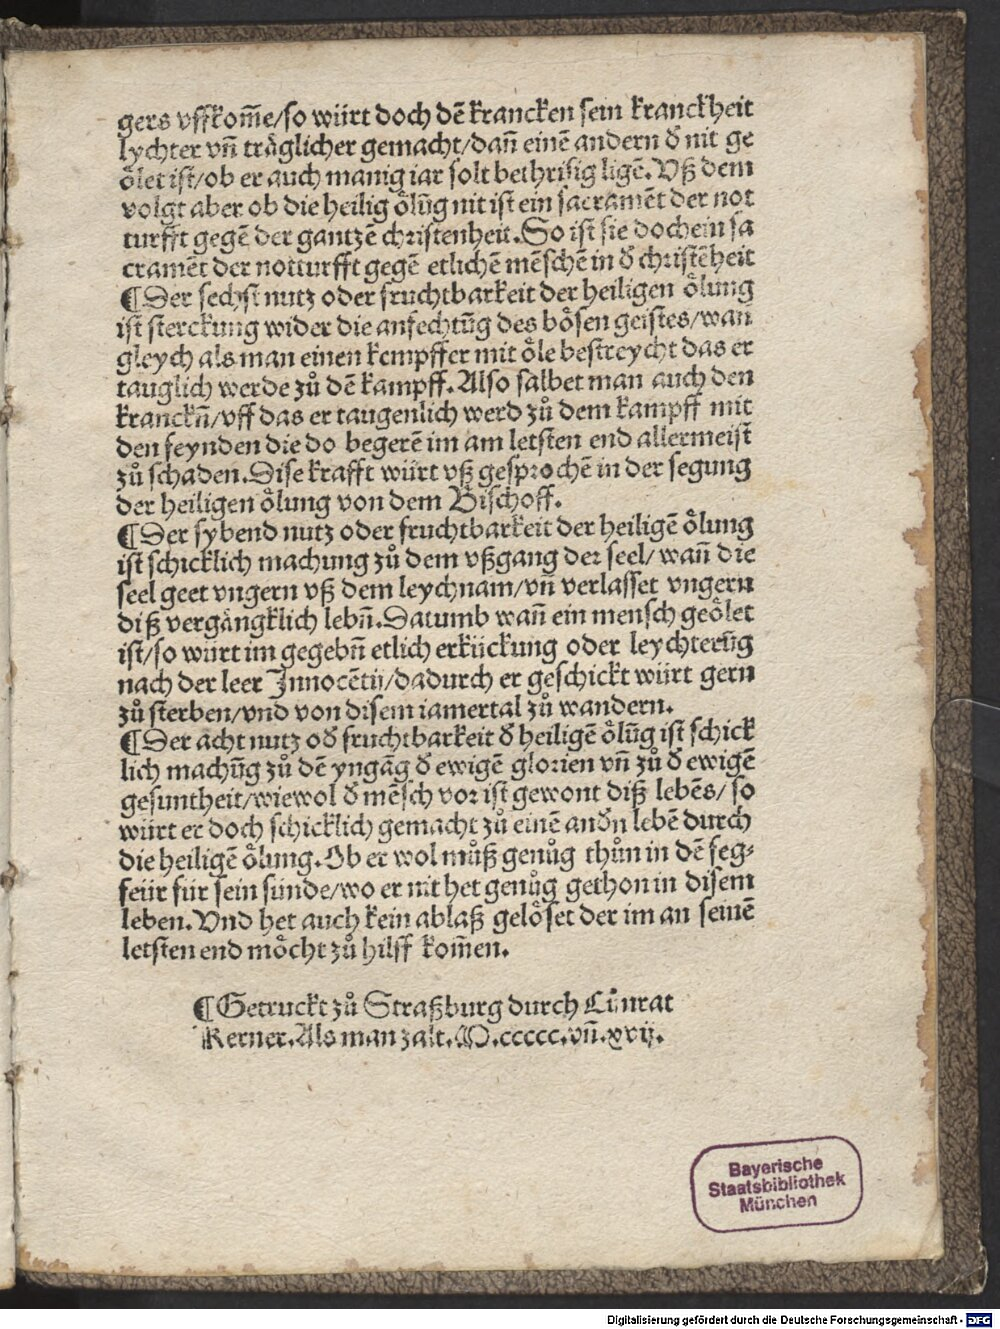 gers vffkom̄e/so würt doch dē krancken sein kranckheit
lychter vn̄ träglicher gemacht/dan̄ einē andern d̄ nit ge
ölet ist/ob er auch manig iar solt bethrisig ligē. Vß dem
volgt aber ob die heilig ölūg nit ist ein sacramēt der not
turfft gegē der gantzē christenheit. So ist sie doch ein sa
cramēt der notturfft gegē etlichē mēschē in d̄ christēheit
¶ Der sechst nutz oder fruchtbarkeit der heiligen ölung
ist sterckung wider die anfechtūg des bösen geistes/wan
gleych als man einen kempffer mit öle bestreycht das er
tauglich werde zů dē kampff. Also salbet man auch den
kranckn̄/vff das er taugenlich werd zů dem kampff mit
den feynden die do begerē im am letsten end allermeist
zů schaden. Dise krafft würt vß gesprochē in der segung
der heiligen ölung von dem Bischoff.
¶ Der sybend nutz oder fruchtbarkeit der heiligē ölung
ist schicklich machung zů dem vßgang der seel/ wan̄ die
seel geet vngern vß dem leychnam/vn̄ verlasset vngern
diß vergängklich lebn̄. Darumb wan̄ ein mensch geölet
ist/so würt im gegebn̄ etlich erkückung oder leychterūg
nach der leer Innocētij/dadurch er geschickt würt gern
zů sterben/vnd von disem iamertal zů wandern.
¶ Der acht nutz od̄ fruchtbarkeit d̄ heiligē ölūg ist schick
lich machūg zů dē yngāg d̄ ewigē glorien vn̄ zů d̄ ewigē
gesuntheit/wiewol d̄ mēsch vor ist gewont diß lebēs/ so
würt er doch schicklich gemacht zů einē and̄n lebē durch
die heiligē ölung. Ob er wol můß genůg thůn in dē feg⸗
feür für sein sünde/wo er nit het genůg gethon in disem
leben. Vnd het auch kein ablaß gelöset der im an seinē
letsten end möcht zů hilff kom̄en.
¶ Getruckt zů Straßburg durch Cůnrat
Kerner. Als man zalt. M.ccccc.vn̄.xvij.
Bayerische
Staatsbibliothek
München
Digitalisierung gefördert durch die Deutsche Forschungsgemeinschaft - DFG